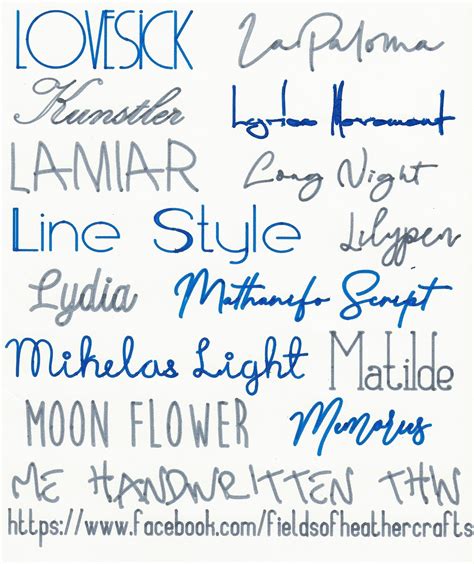 LOVESICK La Paloma
Kunstler Lyrica Movement
LAMIAR Long Night
Line Style Lilypen
Lydia Mathanifo Script
Mikelas Light Matilde
MOON FLOWER Memorus
ME HANDWRITTEN THW
https://www.facebook.com/fieldsofheathercrafts